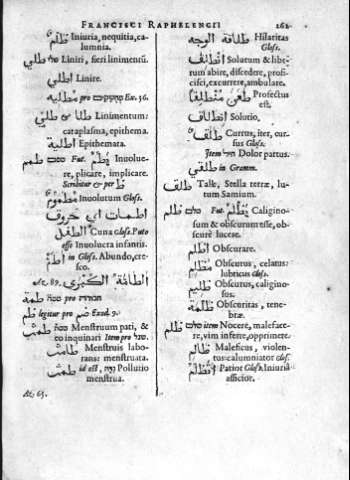 FRANCISCI RAPHELENGII
ظلم Iniuria, nequitia, ca-
lumnia.
طلي טלי Liniri, fieri linimentũ.
اطلي Linire.
pro Ex. 36.
طلا & طلي Linimentum:
cataplasma, epithema.
اطلية Epithemata.
طمم טמם Fut. يطم Inuolue-
re, plicare, implicare.
Scribitur & per ظ
مطموم Inuolutum Glos.
اطمات اي خروف
الطفل Cuna Glos. Puto
esse Inuolucra infantis.
in Glos. Abundo, cre-
sco.
Act. 89. الطامة الكبرى
طمة pro
legitur pro Exod. 9.
طمث Menstruum pati, &
coinquinari Item pro
طامث Menstruis labo-
rans: menstruata.
طمث id est, נדה Pollutio
menstrua.
Act. 65.
طلاقة الوجه Hilaritas
Glos.
انطلق Solutum & libe-
rum abire, discedere, profi-
cisci, excurrere, ambulare.
Profectus
est.
انطلاق Solutio.
طلق Currus, iter, cur-
sus Glos.
Item Dolor partus.
طلقي in Gramm.
طلق Talk, Stella terræ, lu-
tum Samium.
ظلم Fut. يظلم Caligino-
sum & obscurum esse, ob-
scurè lucere.
اظلم Obscurare.
مظلم Obscurus, celatus:
lubricus Glos.
ظليم Obscurus, caligino-
sus.
ظلمة Obscuritas, tene-
bræ.
ظلم item Nocere, maleface-
re, vim inferre, opprimere.
ظالم Maleficus, violen-
tus: calumniator Glos.
انظلم Patior Glos. Iniuria
afficior.